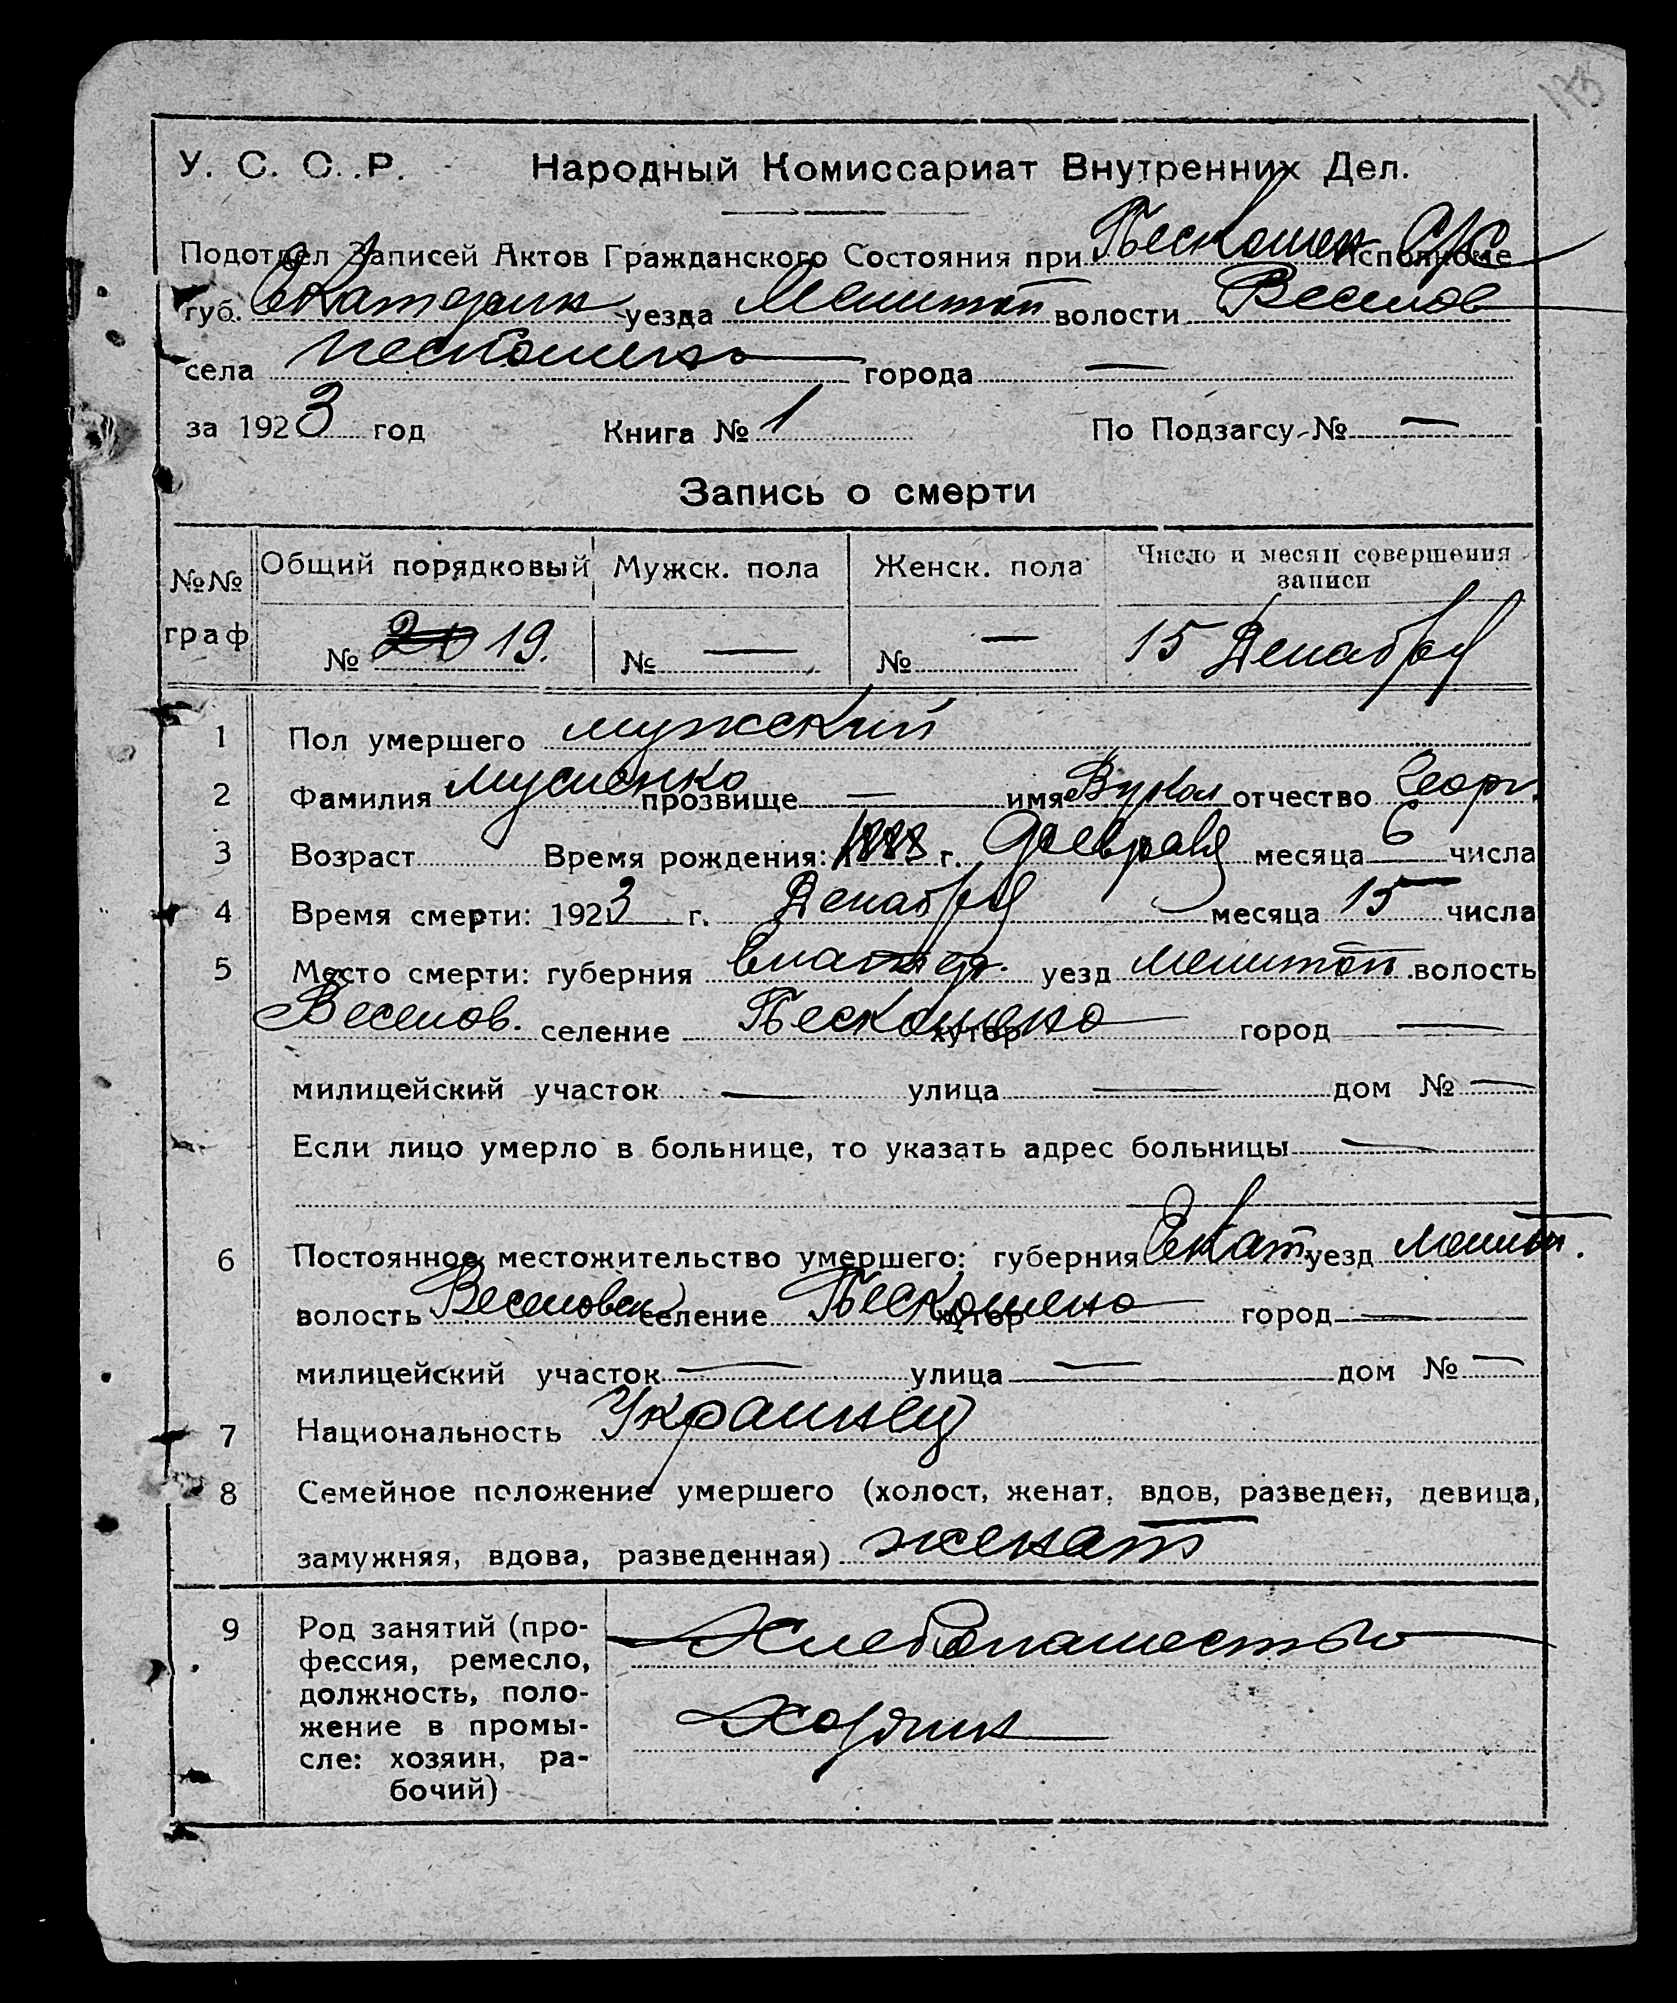 175
У. С. С. Р. Народный Комиссариат Внутренних Дел.
Подотдел Записей Актов Гражданского Состояния при Пескошен С/С Исполкоме
губ. Екатерин уезда Мелитоп волости Веселов
села Пескошено города —
за 1923 год Книга № 1 По Подзагсу № —
Запись о смерти
№№ граф Общий порядковый Мужск. пола Женск. пола Число и месяц совершения записи
№ 19. № — № — 15 Декабря
1 Пол умершего мужеский
2 Фамилия Мусиенко прозвище — имя Вукол отчество Георг.
3 Возраст Время рождения: 1883 г. Февраля месяца 6 числа
4 Время смерти: 1923 г. Декабря месяца 15 числа
5 Место смерти: губерния Екатер. уезд Мелитоп. волость
Веселов. селение Пескошено хутор город —
милицейский участок — улица — дом № —
Если лицо умерло в больнице, то указать адрес больницы —
6 Постоянное местожительство умершего: губерния Екат. уезд Мелит.
волость Веселовск селение Пескошено хутор город —
милицейский участок — улица — дом № —
7 Национальность Украинец
8 Семейное положение умершего (холост, женат, вдов, разведен, девица,
замужняя, вдова, разведенная) женат
9 Род занятий (про-
фессия, ремесло,
должность, поло-
жение в промы-
сле: хозяин, ра-
бочий)
Хлебопашество
Хозяин